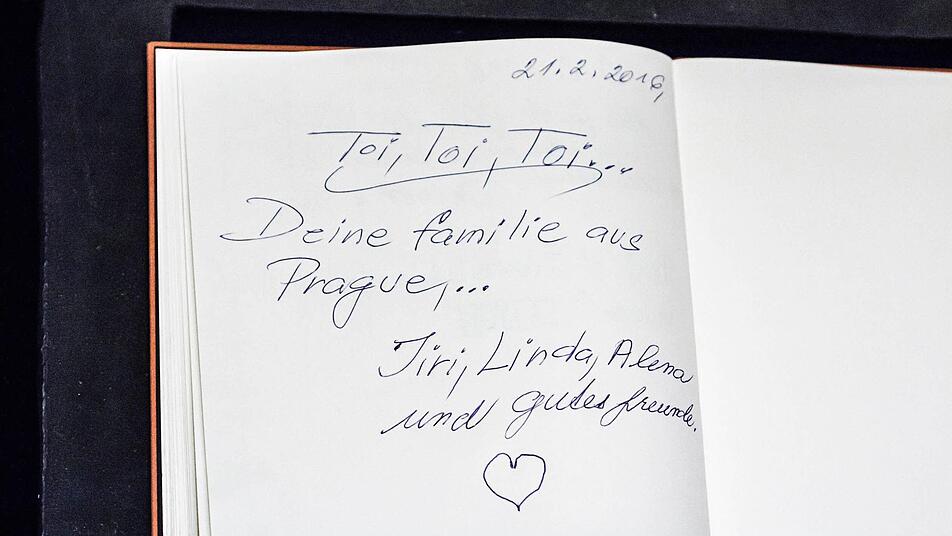 21.2.2016,
Toi, Toi, Toi...
Deine familie aus
Prague,...
Jiri, Linda, Alena
und gutes freunde.